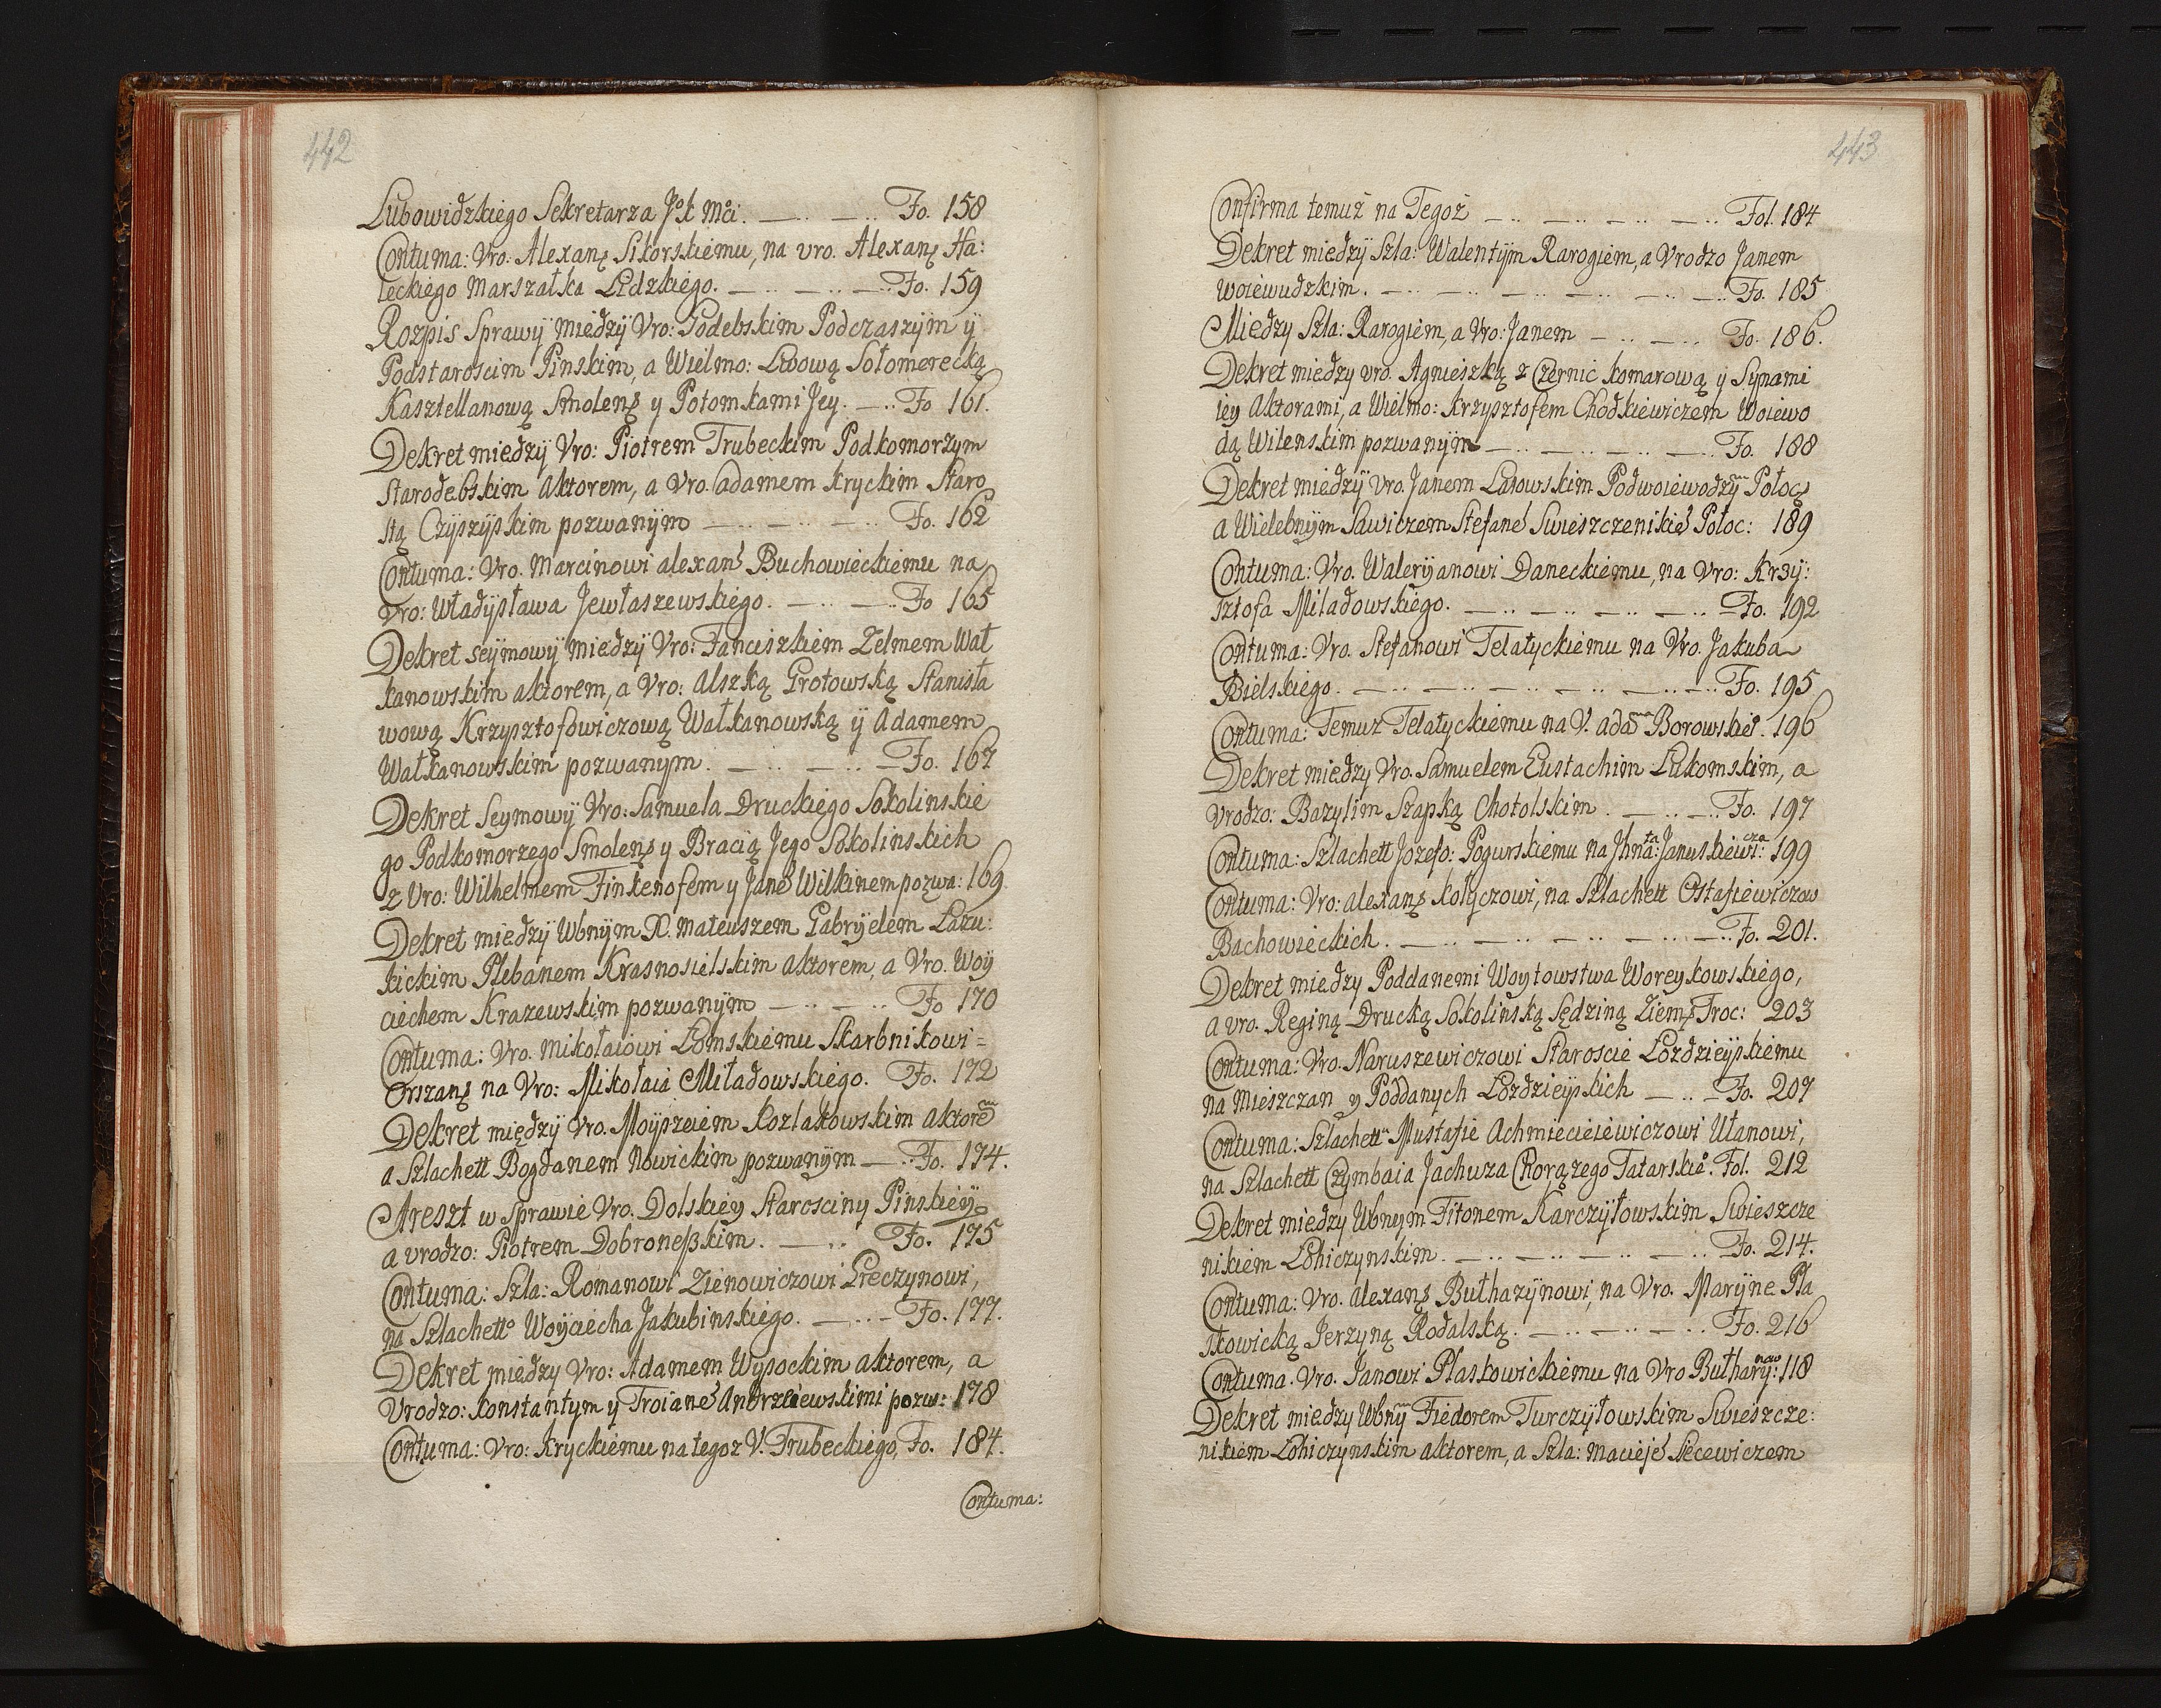 442
Lubowidzkiego Sekretarza Jok Mći. _ .. _ .. Fo. 158
Contuma: Vro: Alexan: Sikorskiemu, na vro. Alexan: Ha:
leckiego Marszałka Lidzkiego. _ .. _ .. _ .. Fo. 159
Rozpis Sprawÿ międzÿ Vro: Godebskim Podczaszÿm ÿ
Podstaroscim Pinskim, a Wielmo: Lwową Sołomerecką
Kasztellanową Smolen: y Potomkami Jey. _ .. Fo 161.
Dekret międzÿ Vro: Piotrem Trubeckim Podkomorzym
Starodebskim Aktorem, a Vro. Adamem Kryckim Staro
stą Czÿszÿskim pozwanÿm _ .. _ .. _ .. Fo. 162
Contuma: Vro. Marcinowi alexan Buchowieckiemu na
vro: Władÿsława Jewłaszewskiego. _ .. _ .. Fo 165
Dekret seÿmowÿ międzÿ Vro: Fanciszkiem Zelmem Wał
kanowskim aktorem, a Vro: Alszką Grotowską Stanisła
wową Krzysztofowiczową Wałkanowską ÿ Adamem
Wałkanowskim pozwanym. _ .. _ .. Fo. 167
Dekret Seymowÿ Vro: Samuela Druckiego Sokolinskie
go Podkomorzego Smolen: y Bracią Jego Sokolinskich
z Vro: Wilhelmem Finkenofem y Jane Wilkinem pozwa: 169
Dekret międzÿ Wbnÿm X. Mateuszem Gabryelem Lazu:
kickim Plebanem Krasnosielskim aktorem, a Vro. Woÿ
ciechem Krazewskim pozwanÿm _ .. _ .. Fo 170
Contuma: Vro. Mikołaiowi Łomskiemu Skarbnikowi =
Orszan: na Vro: Mikołaia Miładowskiego. Fo. 172
Dekret międzÿ Vro. Moÿszeiem Kozlakowskim aktorem
a Szlachett Bogdanem Nowickim pozwanÿm _ .. Fo. 174.
Areszt w Sprawie Vro. Dolskiey Starosciny Pinskieÿ
a vrodzo: Piotrem Dobroneßkim. _ .. Fo. 175
Contuma: Szla: Romanowi Zienowiczowi Greczynowi,
na Szlachetto Woÿciecha Jakubinskiego. _ .. _ Fo. 177.
Dekret między Vro: Adamem Wysockim aktorem, a
Vrodzo: Konstantym y Troiane Andrzeiewskimi pozw: 178
Contuma: Vro: Kryckiemu na tegoz V. Trubeckiego, Fo. 184.
Contuma:
443
Confirma temuż na Tegoż _ .. _ .. _ .. _ .. Fol. 184
Dekret międzÿ Szla: Walentÿm Rarogiem, a Vrodzo Janem
woiewudzkim. _ .. _ .. _ .. _ .. _ .. Fo. 185
Między Szla: Rarogiem, a Vro: Janem _ .. _ .. Fo. 186.
Dekret między vro. Agnieszką z Czernic Komarową ÿ Synami
iey Aktorami, a Wielmo: Krzysztofem Chodkiewiczem Woiewo
dą Wilenskim pozwanÿm _ .. _ .. _ .. Fo. 188
Dekret międzÿ vro. Janem Łakowskim Podwoiewodzym Połoc:
a Wielebnÿm Sawiczem Stefane Swieszczenikie Połoc: 189
Contuma: Vro. Walerÿanowi Daneckiemu, na Vro: Krzÿ:
sztofa Miladowskiego. _ .. _ .. _ .. _ .. Fo. 192
Contuma: Vro. Stefanowi Telatyckiemu na Vro. Jakuba
Bielskiego. _ .. _ .. _ .. _ .. _ .. Fo. 195
Contuma: Temuz Telatyckiemu na V. adama Borowskie. 196
Dekret między Vro. Samuelem Eustachim Łukomskim, a
Vrodzo: Bazylim Szapką Chotolskim. _ .. _ .. Fo. 197
Contuma: Szlachett Jozefo: Pogurskiemu na Jhnata: Januskiewicza: 199
Contuma: Vro: alexan: Kołyczowi, na Szlachett Ostafiewiczow
Bachowieckich. _ .. _ .. _ .. _ .. Fo. 201.
Dekret między Poddanemi Woytowstwa Woreykowskiego,
a vro. Reginą Drucką Sokolinską Sędziną Ziem: Troc: 203
Contuma: Vro. Naruszewiczowi Staroscie Łozdzieÿskiemu
na Mieszczan y Poddanych Łozdzieÿskich _ .. _ Fo. 207
Contuma: Szlachett Mustafie Achmiecieiewiczowi Ułanowi,
na Szlachett Czymbaia Jachuza Chorążego Tatarskieo. Fol. 212
Dekret między Wbnym Fitonem Karczÿłowskim Swieszcze
nikiem Łohiczynskim. _ .. _ .. _ .. _ .. Fo. 214.
Contuma: Vro. Alexan: Buthazÿnowi, na Vro. Marÿne Pła
skowicką Jerzyną Rodalską. _ .. _ .. _ .. Fo. 216
Contuma. Vro. Janowi Płaskowickiemu na Vro Butharÿ: now 118
Dekret między Wbnym Fiedorem Turczÿłowskim Swieszcze:
nikiem Łohiczynskim aktorem, a Szla: Macieje Siecewiczem